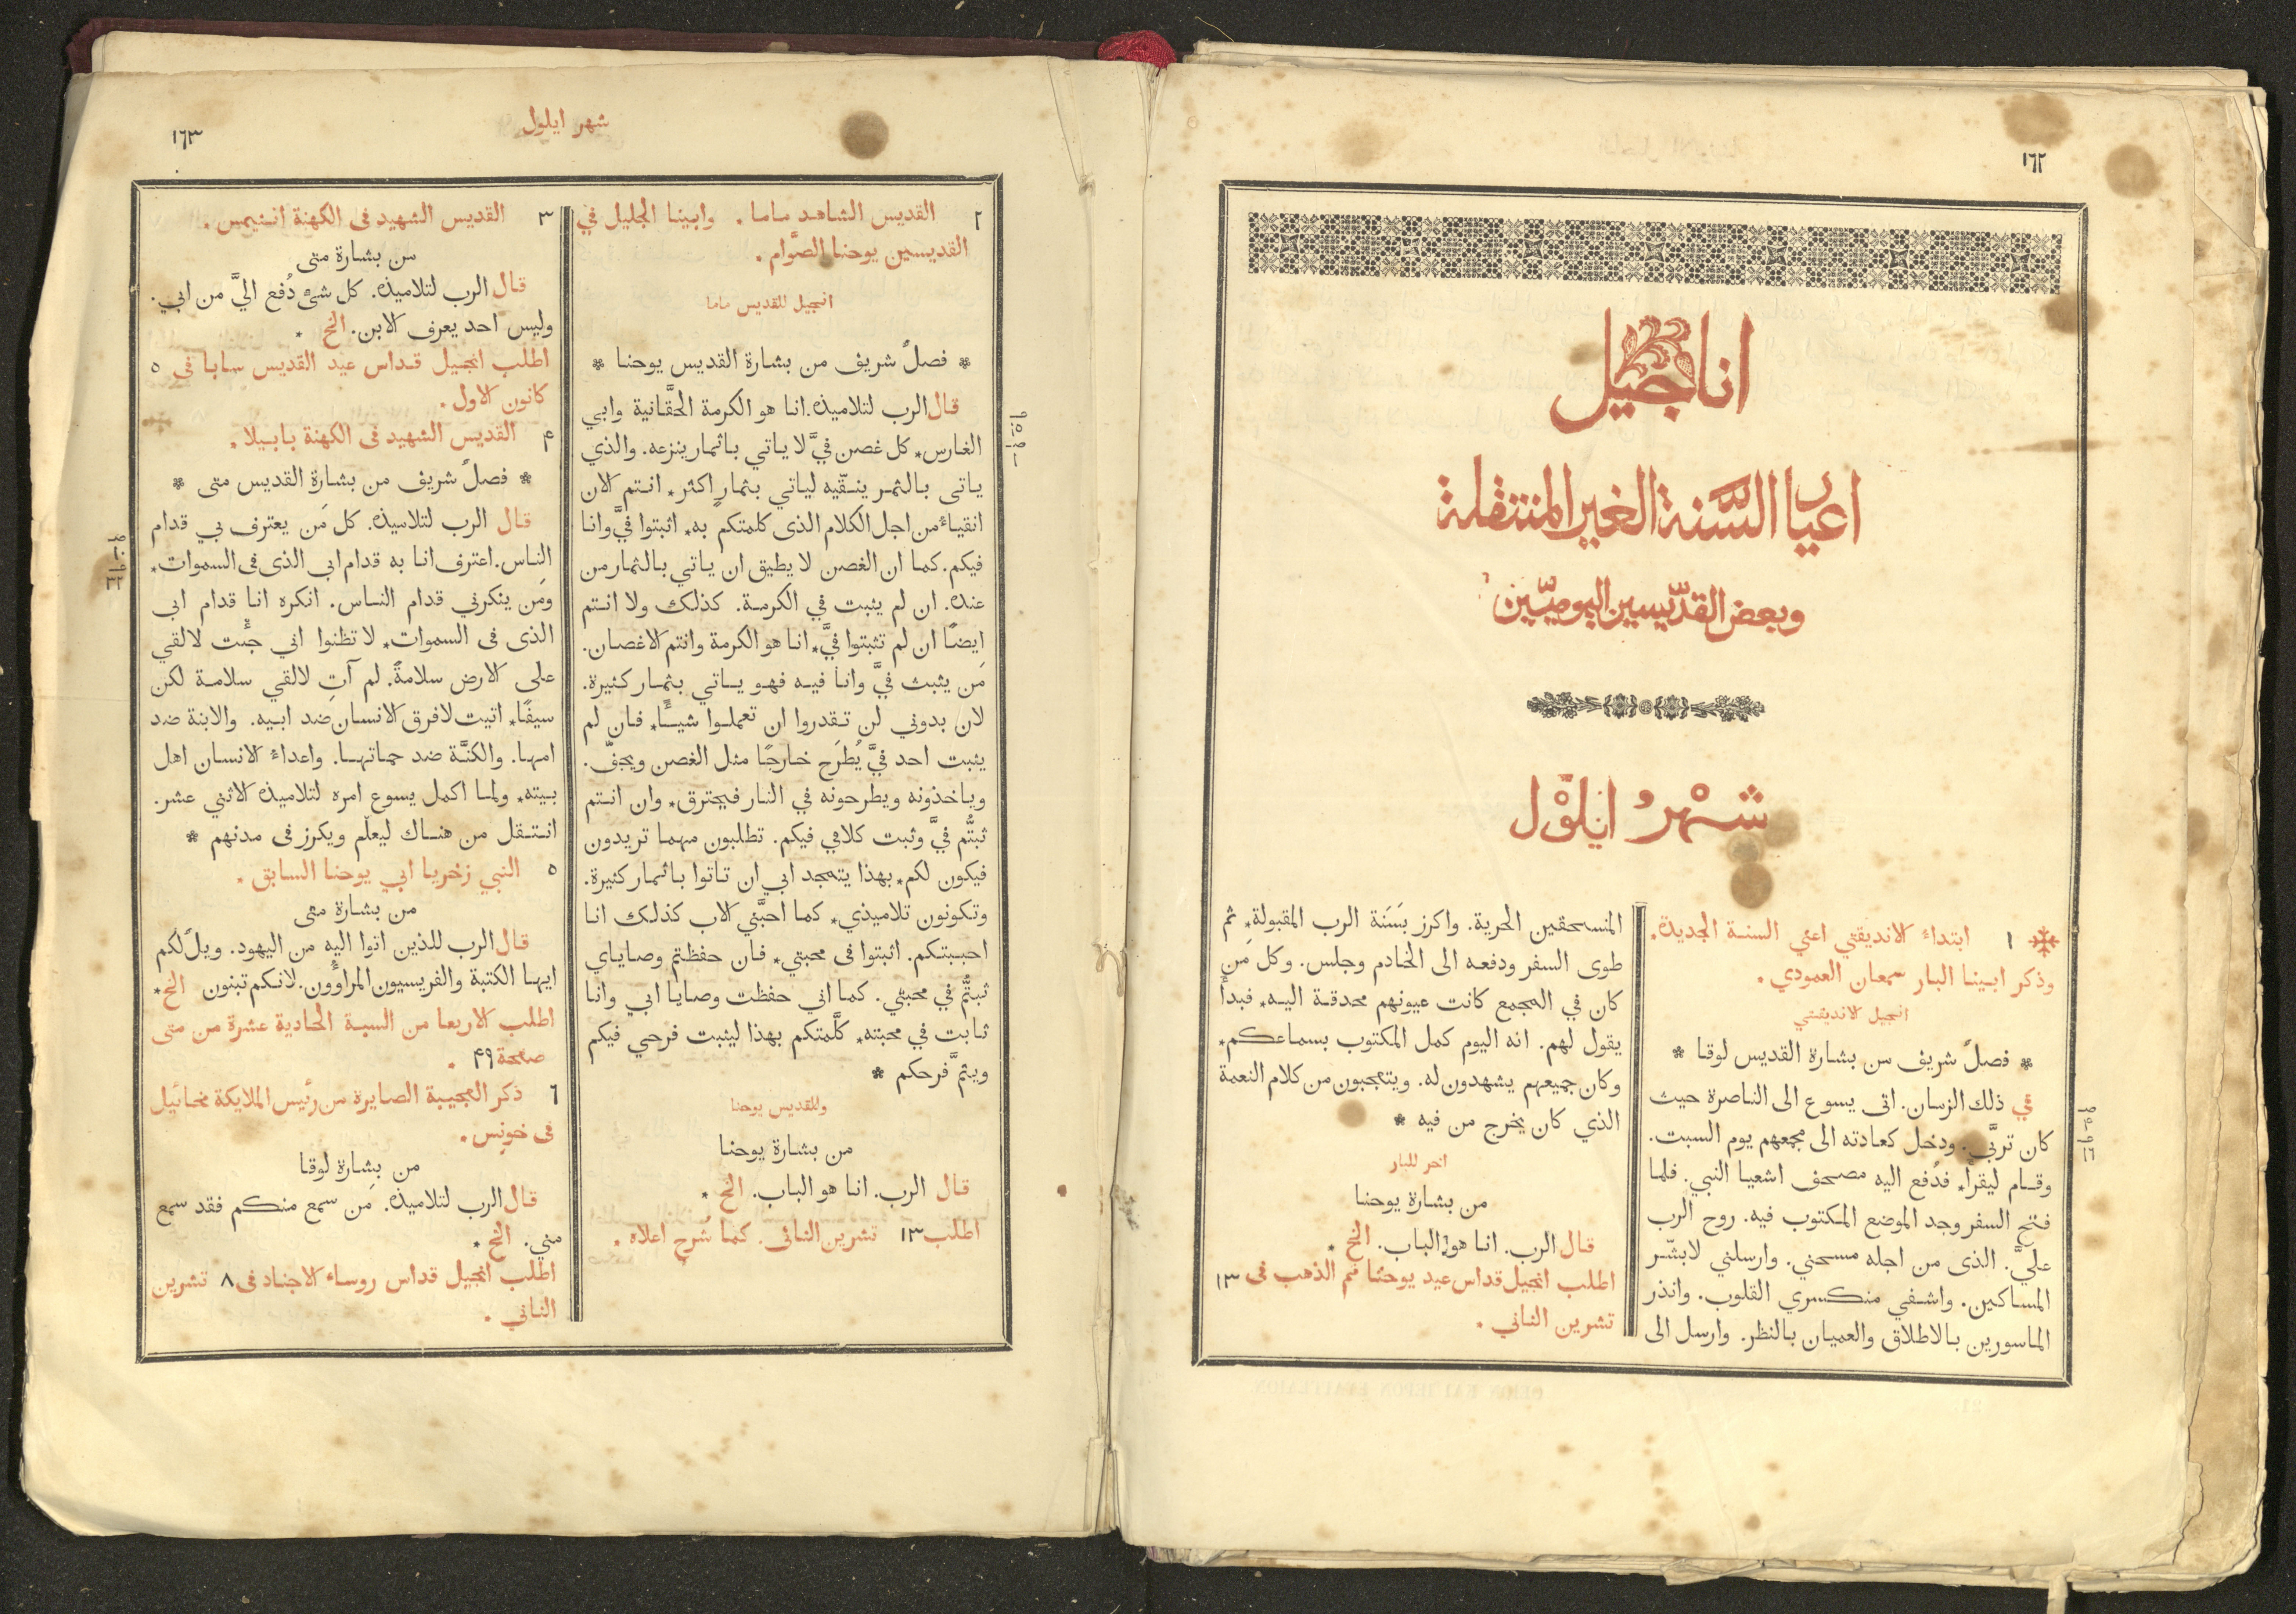 ١٦٢
اناجيل
اعياد السَّنة الغير المنتقلة
وبعض القدّيسين اليوميّين
شَهْرُ ايْلوْل
١ ابتداء الانديقتي اعني السنة الجديدة.
وذكر ابينا البار سمعان العمودي.
انجيل الانديقتي
* فصلٌ شريف من بشارة القديس لوقا *
في ذلك الزمان. اتى يسوع الى الناصرة حيث
كان تربَّى. ودخل كعادته الى مجمعهم يوم السبت.
وقام ليقرأ* فدُفع اليه مصحف اشعيا النبي. فلما
فتح السفر وجد الموضع المكتوب فيه. روح الرب
عليَّ. الذى من اجله مسحني. وارسلني لابشّر
المساكين. واشفي منكسري القلوب. وانذر
الماسورين بالاطلاق والعميان بالنظر. وارسل الى
المنسحقين الحرية. واكرز بَسَنَة الرب المقبولة* ثم
طوى السفر ودفعه الى الخادم وجلس. وكل مَن
كان في المجمع كانت عيونهم محدقة اليه* فبدأ
يقول لهم. انه اليوم كمل المكتوب بسماعكم*
وكان جميعهم يشهدون له. ويتعجبون من كلام النعمة
الذي كان يخرج من فيه *
اخر للبار
من بشارة يوحنا
قال الرب. انا هو الباب. الخ *
اطلب انجيل قداس عيد يوحنا فم الذهب فى ١٣
تشرين الثاني.
شهر ايلول
١٦٣
٢ القديس الشاهد ماما. وابينا الجليل في
القديسين يوحنا الصوَّام.
انجيل للقديس ماما
* فصلٌ شريف من بشارة القديس يوحنا *
قال الرب لتلاميذه. انا هو الكرمة الحقَّانية وابي
الغارس* كل غصن فيَّ لا ياتي باثمار ينزعه. والذي
ياتى بالثمر ينقّيه لياتي بثمارٍ اكثر* انتم الان
انقياءٌ من اجل الكلام الذى كلمتكم به* اثبتوا فيَّ وانا
فيكم. كما ان الغصن لا يطيق ان ياتي بالثمار من
عنده. ان لم يثبت في الكرمة. كذلك ولا انتم
ايضًا ان لم تثبتوا فيَّ* انا هو الكرمة وانتم الاغصان.
مَن يثبث فيَّ وانا فيه فهو ياتي بثمار كثيرة.
لان بدوني لن تقدروا ان تعملوا شيئًا* فان لم
يثبت احد فيَّ يُطرَح خارجًا مثل الغصن ويجفّ.
وياخذونه ويطرحونه في النار فيحترق* وان انتم
ثبتُّم فيَّ وثبت كلامي فيكم. تطلبون مهما تريدون
فيكون لكم* بهذا يتمجد ابي ان تاتوا باثمار كثيرة.
وتكونون تلاميذي* كما احبَّني الاب كذلك انا
احببتكم. اثبتوا فى محبتي* فان حفظتم وصاياي
ثبتُّم في محبتي. كما اني حفظت وصايا ابي وانا
ثابت في محبته* كلَّمتكم بهذا ليثبت فرحي فيكم
ويتمَّ فرحكم *
وللقديس يوحنا
من بشارة يوحنا
قال الرب. انا هو الباب. الخ *
اطلب ١٣ تشرين الثانى. كما شُرح اعلاه.
٣ القديس الشهيد فى الكهنة انثيمس.
من بشارة متى
قال الرب لتلاميذه. كل شىْ دُفع اليَّ من ابي.
وليس احد يعرف الابن. الخ *
اطلب انجيل قداس عيد القديس سابا فى ٥
كانون الاول.
۴ القديس الشهيد فى الكهنة بابيلا.
* فصلٌ شريف من بشارة القديس متى *
قال الرب لتلاميذه. كل مَن يعترف بي قدام
الناس. اعترف انا به قدام ابى الذى فى السموات*
ومَن ينكرني قدام الناس. انكره انا قدام ابى
الذى فى السموات* لا تظنوا اني جئت لالقي
على الارض سلامةً. لم آتِ لالقي سلامة لكن
سيفًا* اتيت لافرق الانسان ضد ابيه. والابنة ضد
امها. والكنَّة ضد حماتها. واعداءُ الانسان اهل
بيته* ولما اكمل يسوع امره لتلاميذه الاثني عشر.
انتقل من هناك ليعلم ويكرز فى مدنهم *
٥ النبي زخريا ابي يوحنا السابق.
من بشارة متى
قال الرب للذين اتوا اليه من اليهود. ويلٌ لكم
ايها الكتبة والفريسيون المراؤون. لانكم تبنون الخ*
اطلب الاربعا من السبة الحادية عشرة من متى
صفحة ۴٩.
٦ ذكر العجيبة الصايرة من رئيس الملايكة مخائيل
فى خونِس.
من بشارة لوقا
قال الرب لتلاميذه. مَن سمع منكم فقد سمع
مني. الخ *
اطلب انجيل قداس روساء الاجناد فى ٨ تشرين
الثاني.